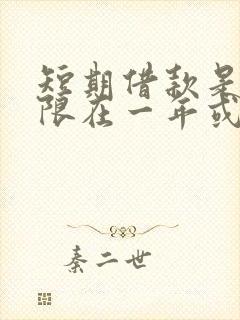 短期借款是
限在一年或
秦二世